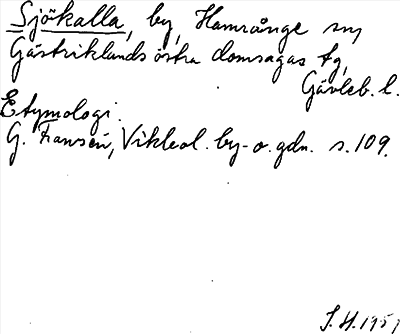 Sjökalla, by, Hamrånge sn,
Gästriklands östra domsagas tg,
Gävleb. l.
Etymologi.
G. Fransén, Vikleol. by- o. gdn. s. 109.
S. H. 1951